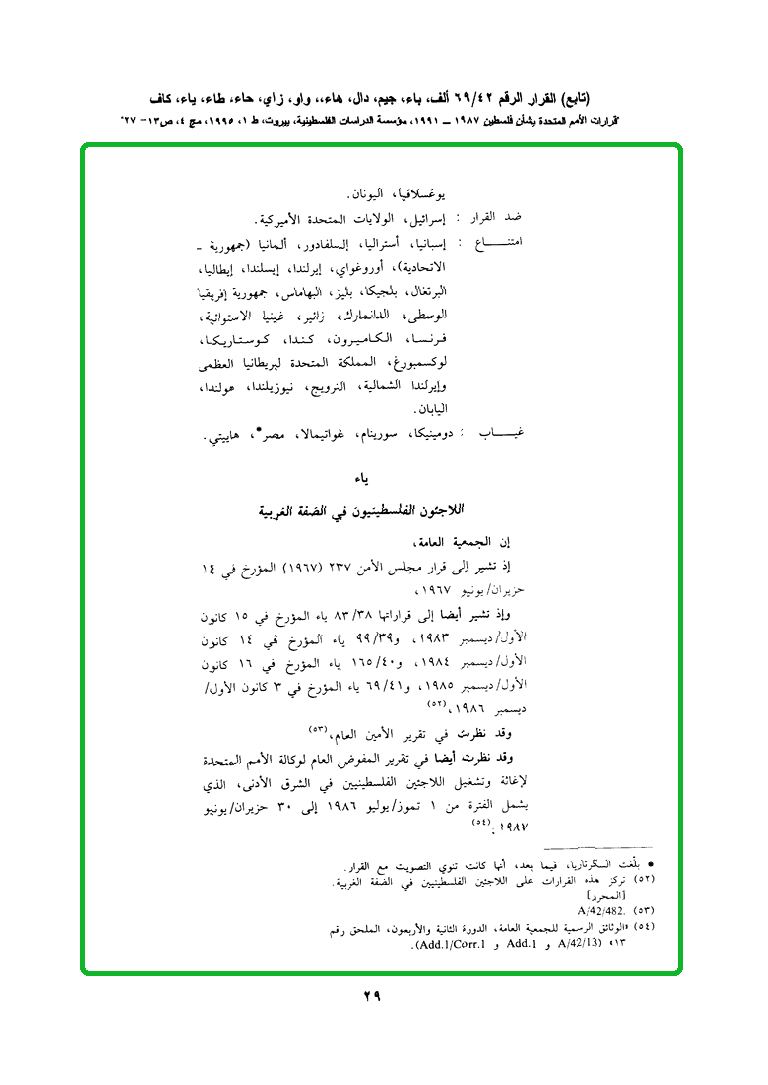 (تابع) القرار الرقم ٦٩/٤٢ ألف، باء، جيم، دال، هاء،، واو، زاي، حاء، طاء، ياء، كاف
"قرارات الأمم المتحدة بشأن فلسطين ١٩٨٧ ــ ١٩٩١، مؤسسة الدراسات الفلسطينية، بيروت، ط ١، ١٩٩٥، مج ٤، ص١٣- ٢٧"
يوغسلافيا، اليونان.
ضد القرار : إسرائيل، الولايات المتحدة الأميركية.
امتنـــــاع : إسبانيا، أستراليا، إلسلفادور، ألمانيا (جمهورية ـ
الاتحادية)، أوروغواي، إيرلندا، إيسلندا، إيطاليا،
البرتغال، بلجيكا، بليز، البهاماس، جمهورية إفريقيا
الوسطى، الدانمارك، زائير، غينيا الاستوائية،
فرنسا، الكاميرون، كندا، كوستاريكا،
لوكسمبورغ، المملكة المتحدة لبريطانيا العظمى
وإيرلندا الشمالية، النرويج، نيوزيلندا، هولندا،
اليابان.
غيــــاب : دومينيكا، سورينام، غواتيمالا، مصر•، هاييتي.
ياء
اللاجئون الفلسطينيون في الضفة الغربية
إن الجمعية العامة،
إذ تشير إلى قرار مجلس الأمن ٢٣٧ (١٩٦٧) المؤرخ في ١٤
حزيران/يونيو ١٩٦٧،
وإذ تشير أيضا إلى قراراتها ٨٣/٣٨ ياء المؤرخ في ١٥ كانون
الأول/ديسمبر ١٩٨٣، و٩٩/٣٩ ياء المؤرخ في ١٤ كانون
الأول/ديسمبر ١٩٨٤، و١٦٥/٤٠ ياء المؤرخ في ١٦ كانون
الأول/ديسمبر ١٩٨٥، و٦٩/٤١ ياء المؤرخ في ٣ كانون الأول/
ديسمبر ١٩٨٦،(٥٢)
وقد نظرت في تقرير الأمين العام،(٥٣)
وقد نظرت أيضا في تقرير المفوض العام لوكالة الأمم المتحدة
لإغاثة وتشغيل اللاجئين الفلسطينيين في الشرق الأدنى، الذي
يشمل الفترة من ١ تموز/يوليو ١٩٨٦ إلى ٣٠ حزيران/يونيو
١٩٨٧،(٥٤)
• بلّغت السكرتاريا، فيما بعد، أنها كانت تنوي التصويت مع القرار.
(٥٢) تركز هذه القرارات على اللاجئين الفلسطينيين في الضفة الغربية.
[المحرر]
(٥٣) A/42/482.
(٥٤) «الوثائق الرسمية للجمعية العامة، الدورة الثانية والأربعون، الملحق رقم
١٣» (A/42/13 و Add.1 و Add.1/Corr.1).
٢٩